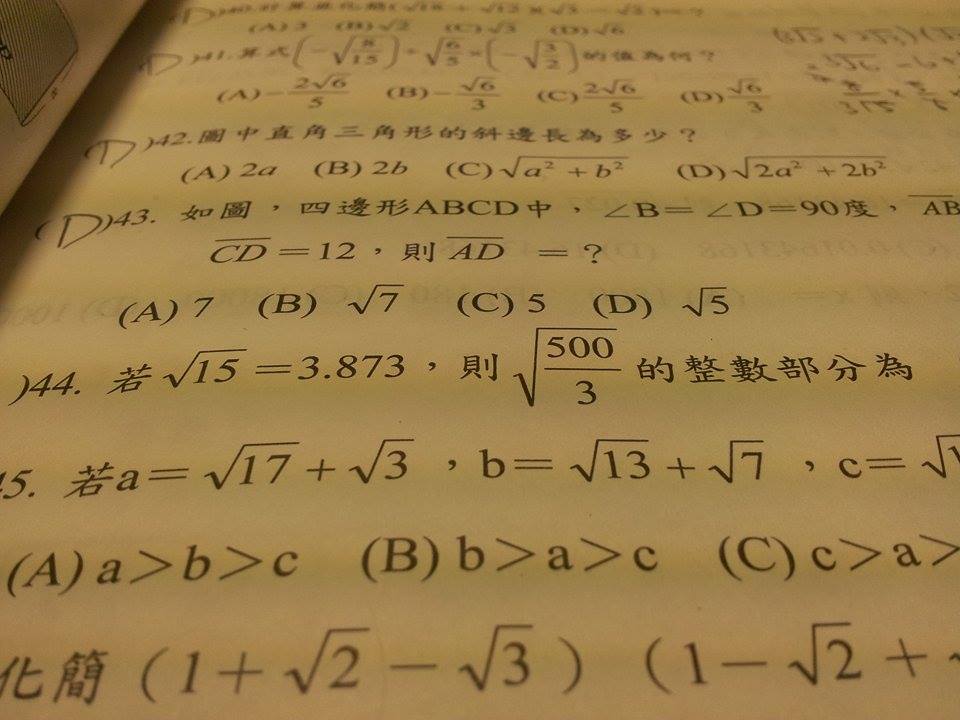 (A) 3 (B) √2 (C) √3 (D) √6
D )41.算式(-√(8/15))÷√(6/5)×(-√(3/2))的值為何?
(A)-2√6/5 (B)-√6/3 (C)2√6/5 (D)√6/3
(D )42.圖中直角三角形的斜邊長為多少?
(A) 2a (B) 2b (C)√(a²+b²) (D)√(2a²+2b²)
( D)43. 如圖,四邊形ABCD中,∠B=∠D=90度,AB
CD=12,則AD =?
(A) 7 (B) √7 (C) 5 (D) √5
)44. 若√15=3.873,則√(500/3)的整數部分為
45. 若a=√17+√3,b=√13+√7,c=√1
(A) a>b>c (B) b>a>c (C) c>a>
化簡(1+√2-√3)(1-√2+√